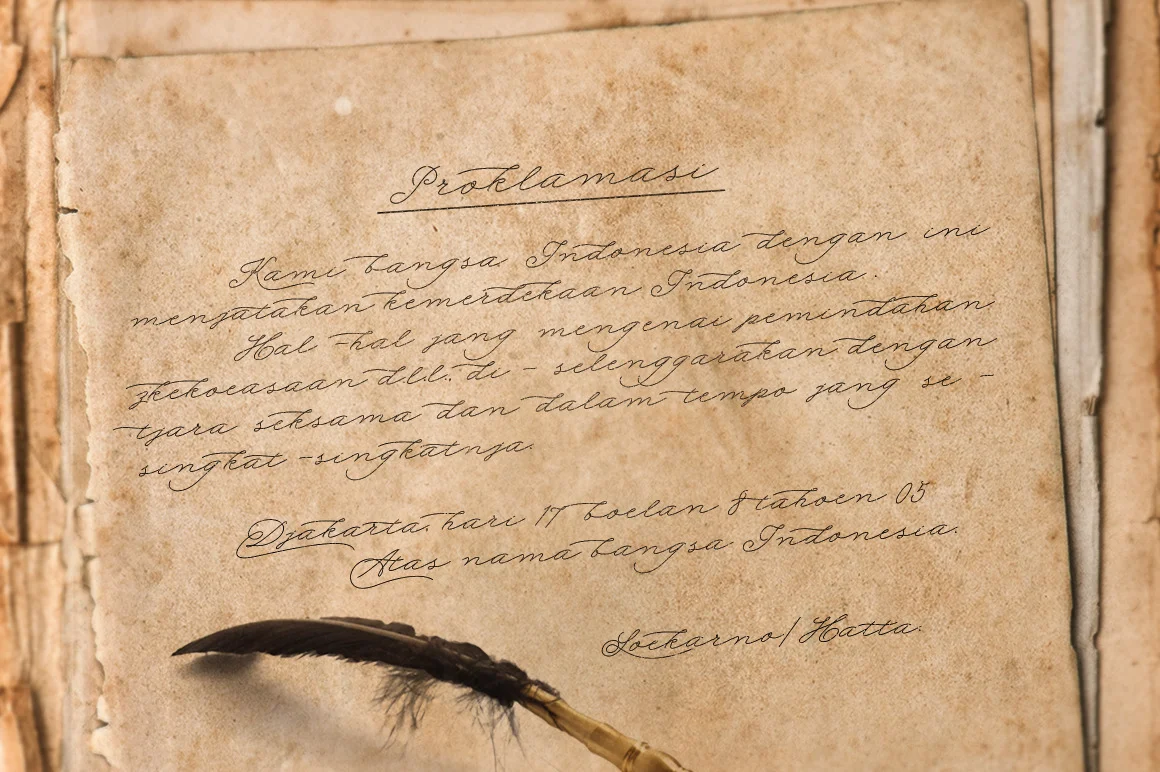 Proklamasi
Kami bangsa Indonesia dengan ini
menjatakan kemerdekaan Indonesia.
Hal-hal jang mengenai pemindahan
zkekoeasaan d.l.l. di - selenggarakan dengan
tjara seksama dan dalam tempo jang se -
singkat -singkatnja.
Djakarta. hari 17 boelan 8 tahoen 05
Atas nama bangsa Indonesia.
Soekarno/Hatta.